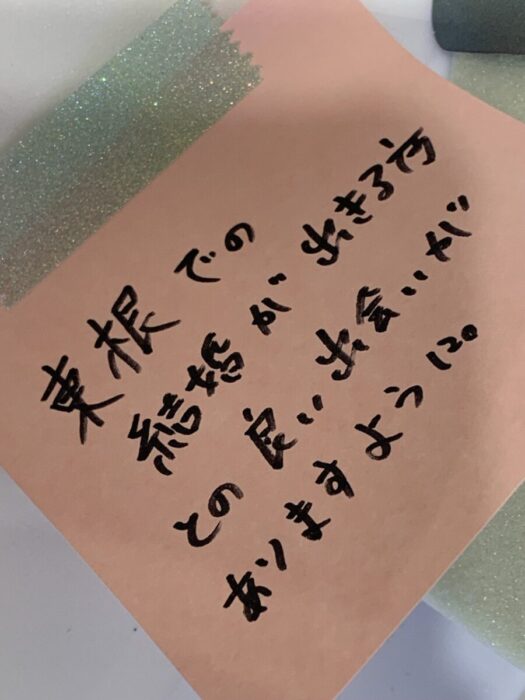 東根での
結婚が出きる方
との良い出会いが
ありますように。